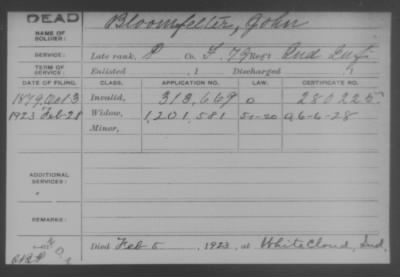 DEAD
Bloomfelter, John
NAME OF SOLDIER:
SERVICE: Late rank, P Co. I, 79 Reg't Ind Inf
TERM OF SERVICE: Enlisted , 1 Discharged , 1
DATE OF FILING. CLASS. APPLICATION NO. LAW. CERTIFICATE NO.
1879 Oct 3 Invalid, 313,669 O 280225
1923 Feb-28 Widow, 1,201,581 51-20 A6-6-28
Minor,
ADDITIONAL SERVICES:
REMARKS:
Died Feb 5, 1923, at White Cloud, Ind.